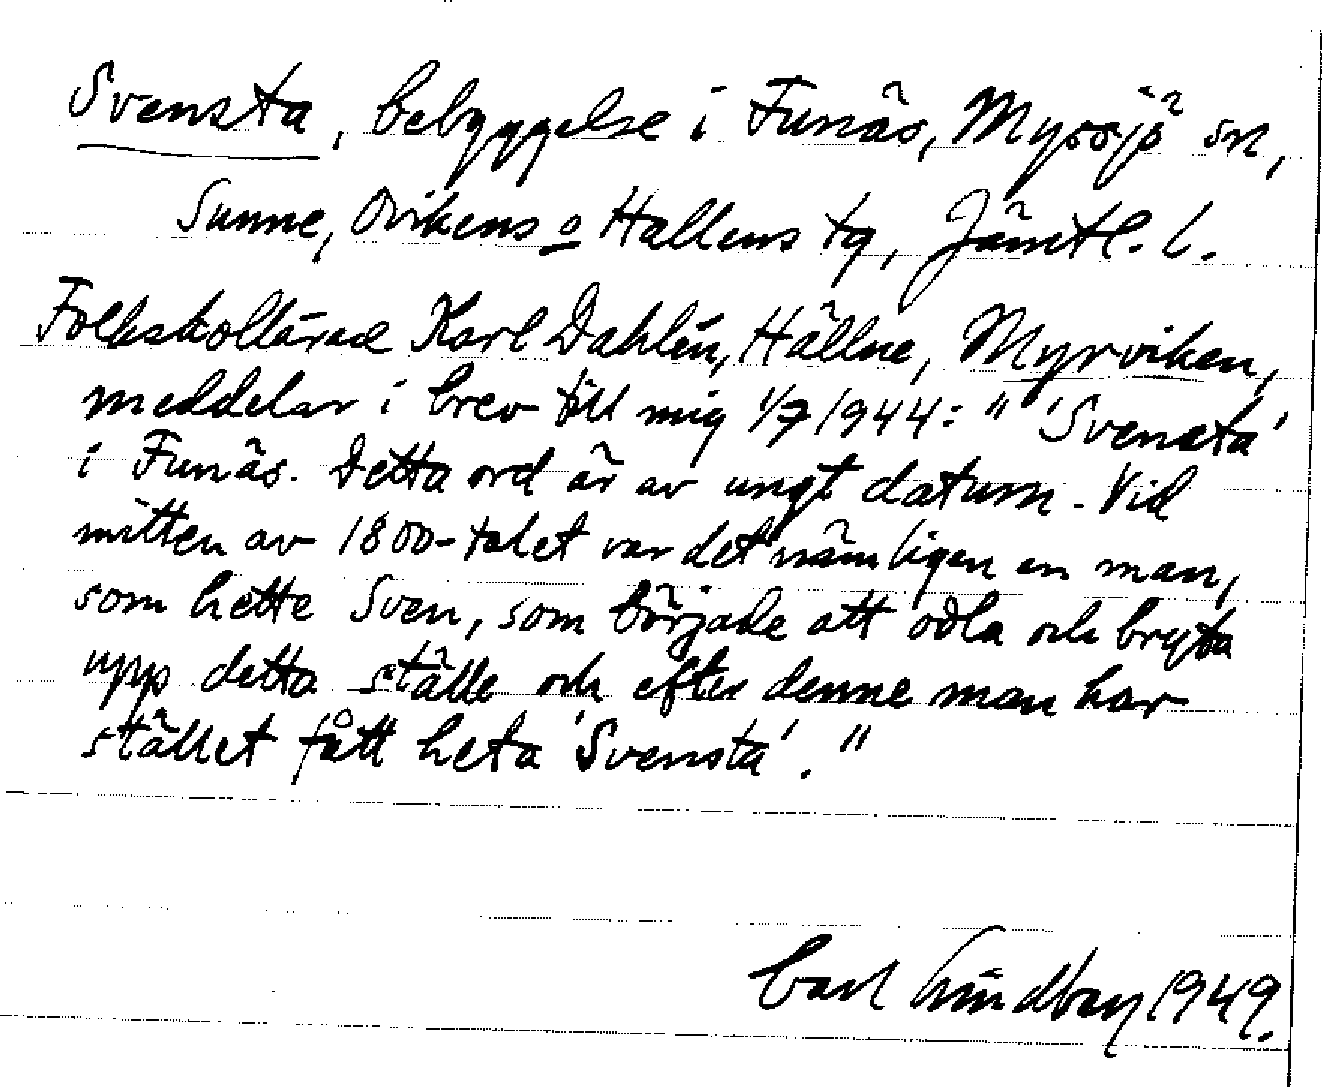 Svensta, bebyggelse i Funäs, Myssjö sn,
Sunne, Ovikens o Hallens tg, Jämtl. l.
Folkskollärare Karl Dahlén, Hällne, Myrviken,
meddelar i brev till mig 1/7 1944: " 'Svensta'
i Funäs. Detta ord är av ungt datum. Vid
mitten av 1800-talet var det nämligen en man,
som hette Sven, som började att odla och bryta
upp detta ställe och efter denne man har
stället fått heta 'Svensta'."
Carl Lindberg 1949.